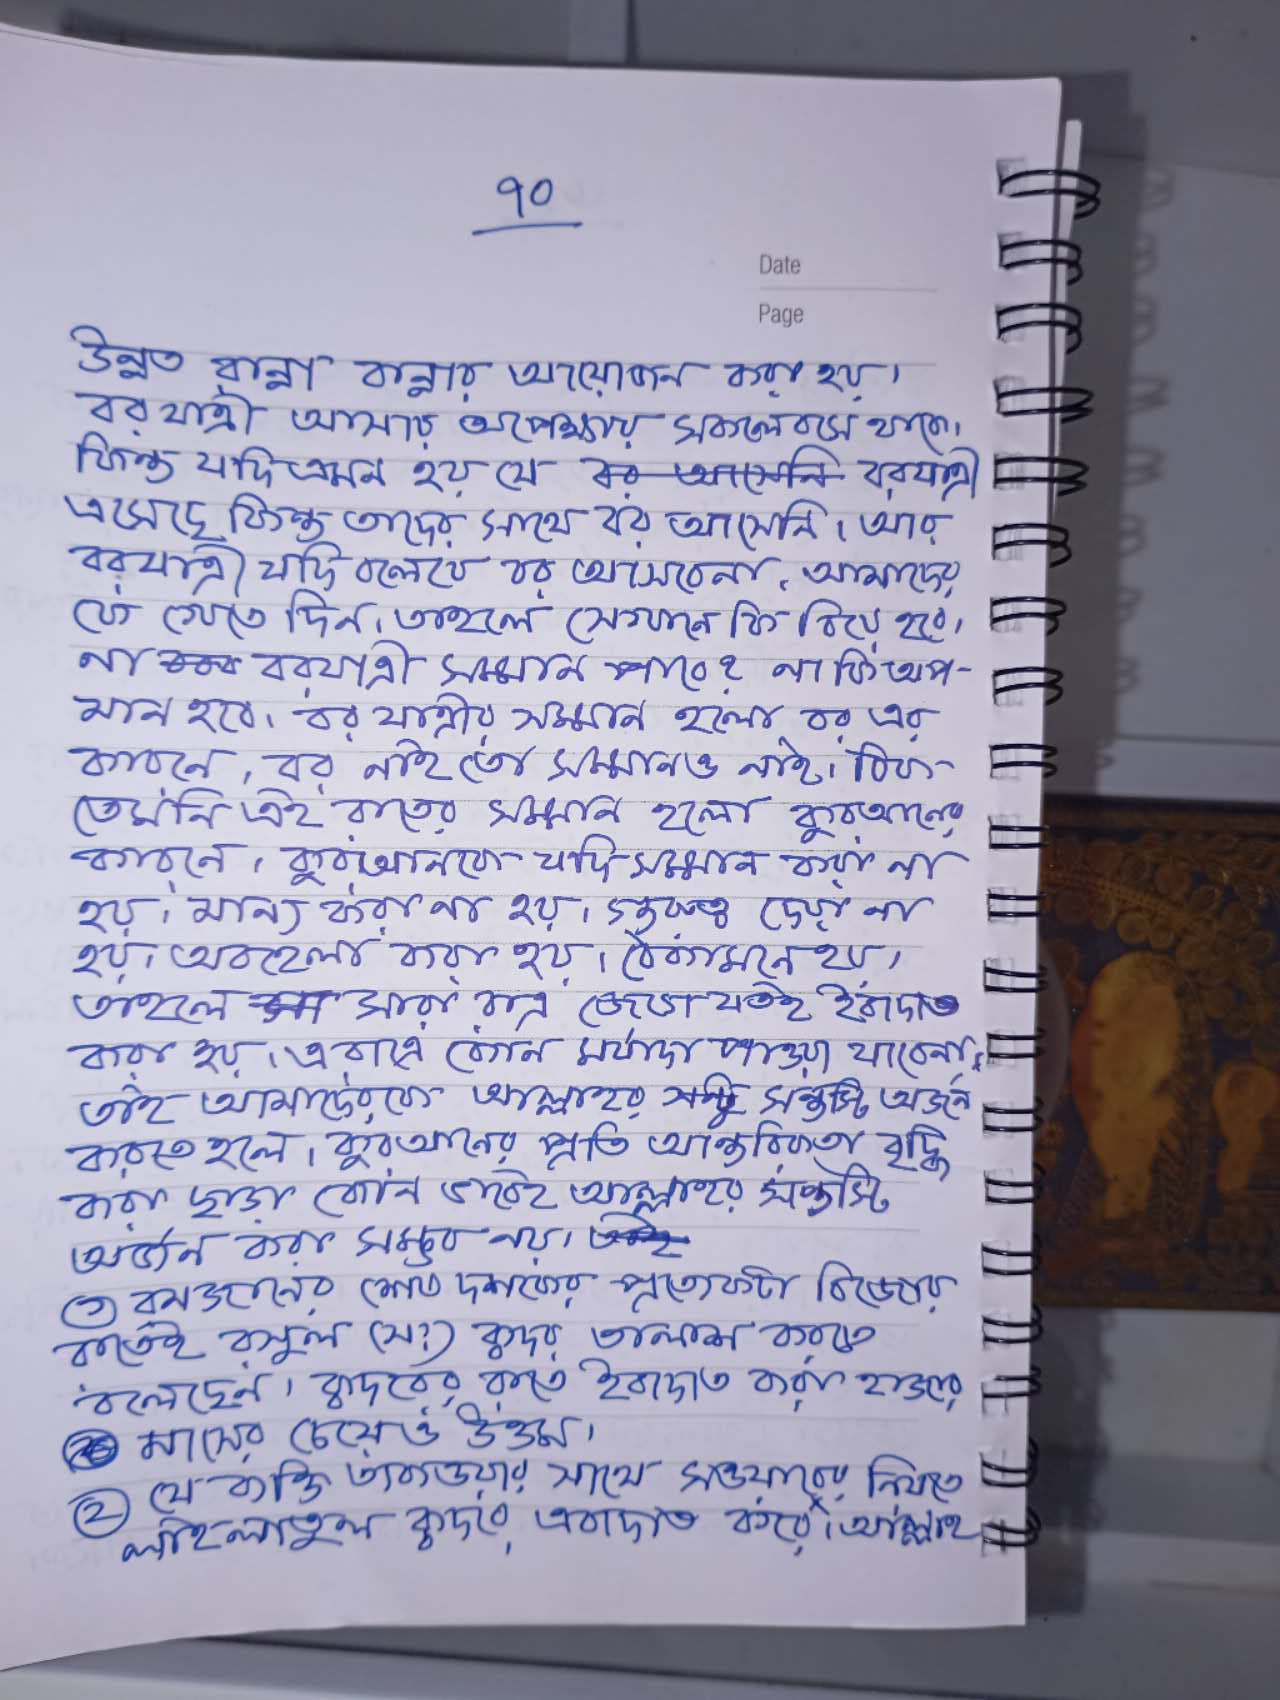 ৭০
Date
Page
উন্নত রান্না বান্নার আয়োজন করা হয়।
বরযাত্রী আসার অপেক্ষায় সকলে বসে থাকে।
কিন্তু যদি এমন হয় যে বর আসেনি বরযাত্রী
এসেছে কিন্তু তাদের সাথে বর আসেনি। আর
বরযাত্রী যদি বলে যে বর আসবেনা, আমাদের
কে খেতে দিন। তাহলে সেখানে কি বিয়ে হবে।
না বরযাত্রী সম্মান পাবে? না কি অপ-
মান হবে। বর যাত্রীর সম্মান হলো বর এর
কারনে, বর নাই তো সম্মানও নাই। ঠিক
তেমনি এই রাতের সম্মান হলো কুরআনের
কারনে। কুরআনকে যদি সম্মান করা না
হয়। মান্য করা না হয়। গুরুত্ব দেয়া না
হয়। অবহেলা করা হয়।
তাহলে সারা রাত্র জেগে যতই ইবাদাত
করা হয়। এ রাত্রে কোন মর্যাদা পাওয়া যাবেনা,
তাই আমাদেরকে আল্লাহর সন্তুস্টি অর্জন
করতে হলে। কুরআনের প্রতি আন্তরিকতা বৃদ্ধি
করা ছাড়া কোন ভাবেই আল্লাহর সন্তুস্টি
অর্জন করা সম্ভব নয়। তাই
রমজানের শেষ দশকের প্রত্যেকটা বিজোর
রাতেই রাসুল (সঃ) ক্বদর তালাশ করতে
বলেছেন। ক্বদরের রাতে ইবাদাত করা হাজার
মাসের চেয়েও উত্তম।
২ যে ব্যক্তি তাকওয়ার সাথে সওয়াবের নিয়তে
লাইলাতুল ক্বদরে এবাদাত করে। আল্লাহ